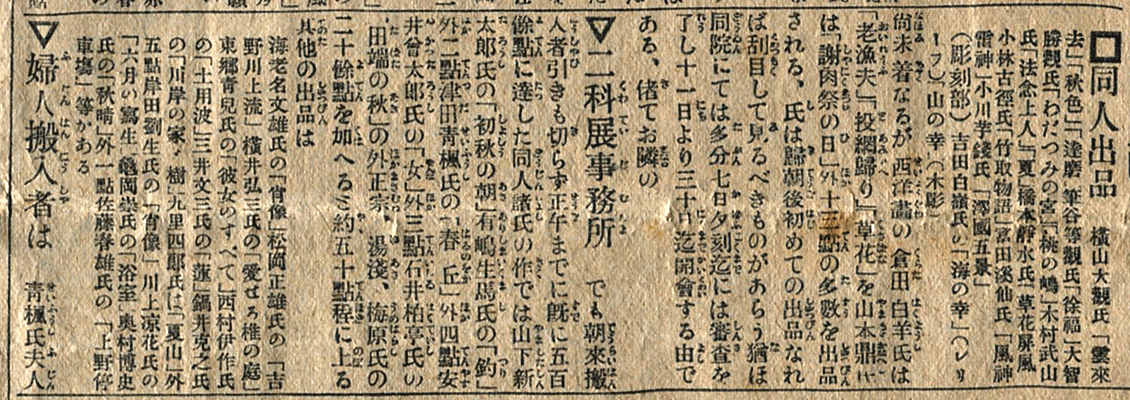 □同人出品　横山大觀氏「雲來
去」「秋色」「達磨」筆谷等觀氏「徐福」大智
勝觀氏「わだつみの宮」「桃の嶋」木村武山
氏「法念上人」「夏」橋本靜水氏「草花屏風
小林古徑氏「竹取物語」冨田溪仙氏「風神
雷神」小川芋錢氏「澤國五景」
（彫刻部）吉田白嶺氏の「海の幸」（レリ
ーフ）「山の幸（木彫）
尚未着なるが西洋畵の倉田白羊氏は
「老漁夫」「投網歸り」「草花」を山本鼎氏
は「謝肉祭の日」外十三點の多數を出品
される、氏は歸朝後初めての出品なれ
ば刮目して見るべきものがあらう猶ほ
同院にては多分七日夕刻迄には審査を
了し十一日より三十日迄開會する由で
ある、偖てお隣の
▽二科展事務所　でも朝來搬
入者引きも切らず正午までに既に五百
餘點に達した同人諸氏の作では山下新
太郎氏の「初秋の朝」有嶋生馬氏の「釣」
外二點津田青楓氏の「春の丘」外四點安
井曾太郎氏の「女」外三點石井柏亭氏の
「田端の秋」の外正宗、湯淺、梅原氏の
二十餘點を加へると約五十點程に上る
其他の出品は
海老名文雄氏の「肖像」松岡正雄氏の「吉
野川上流」横井弘三氏の「愛せる椎の庭」
東郷青兒氏の「彼女のすべて」西村伊作氏
の「土用波」三井文三氏の「蓮」鍋井克之氏
の「川岸の家と樹」九里四郎氏は「夏山」外
五點岸田劉生氏の「肖像」川上凉花氏の
「六月の寫生」龜岡崇氏の「浴室」奥村博史
氏の「秋晴」外一點佐藤春雄氏の「上野停
車塲」等がある
▽婦人搬入者は　青楓氏夫人